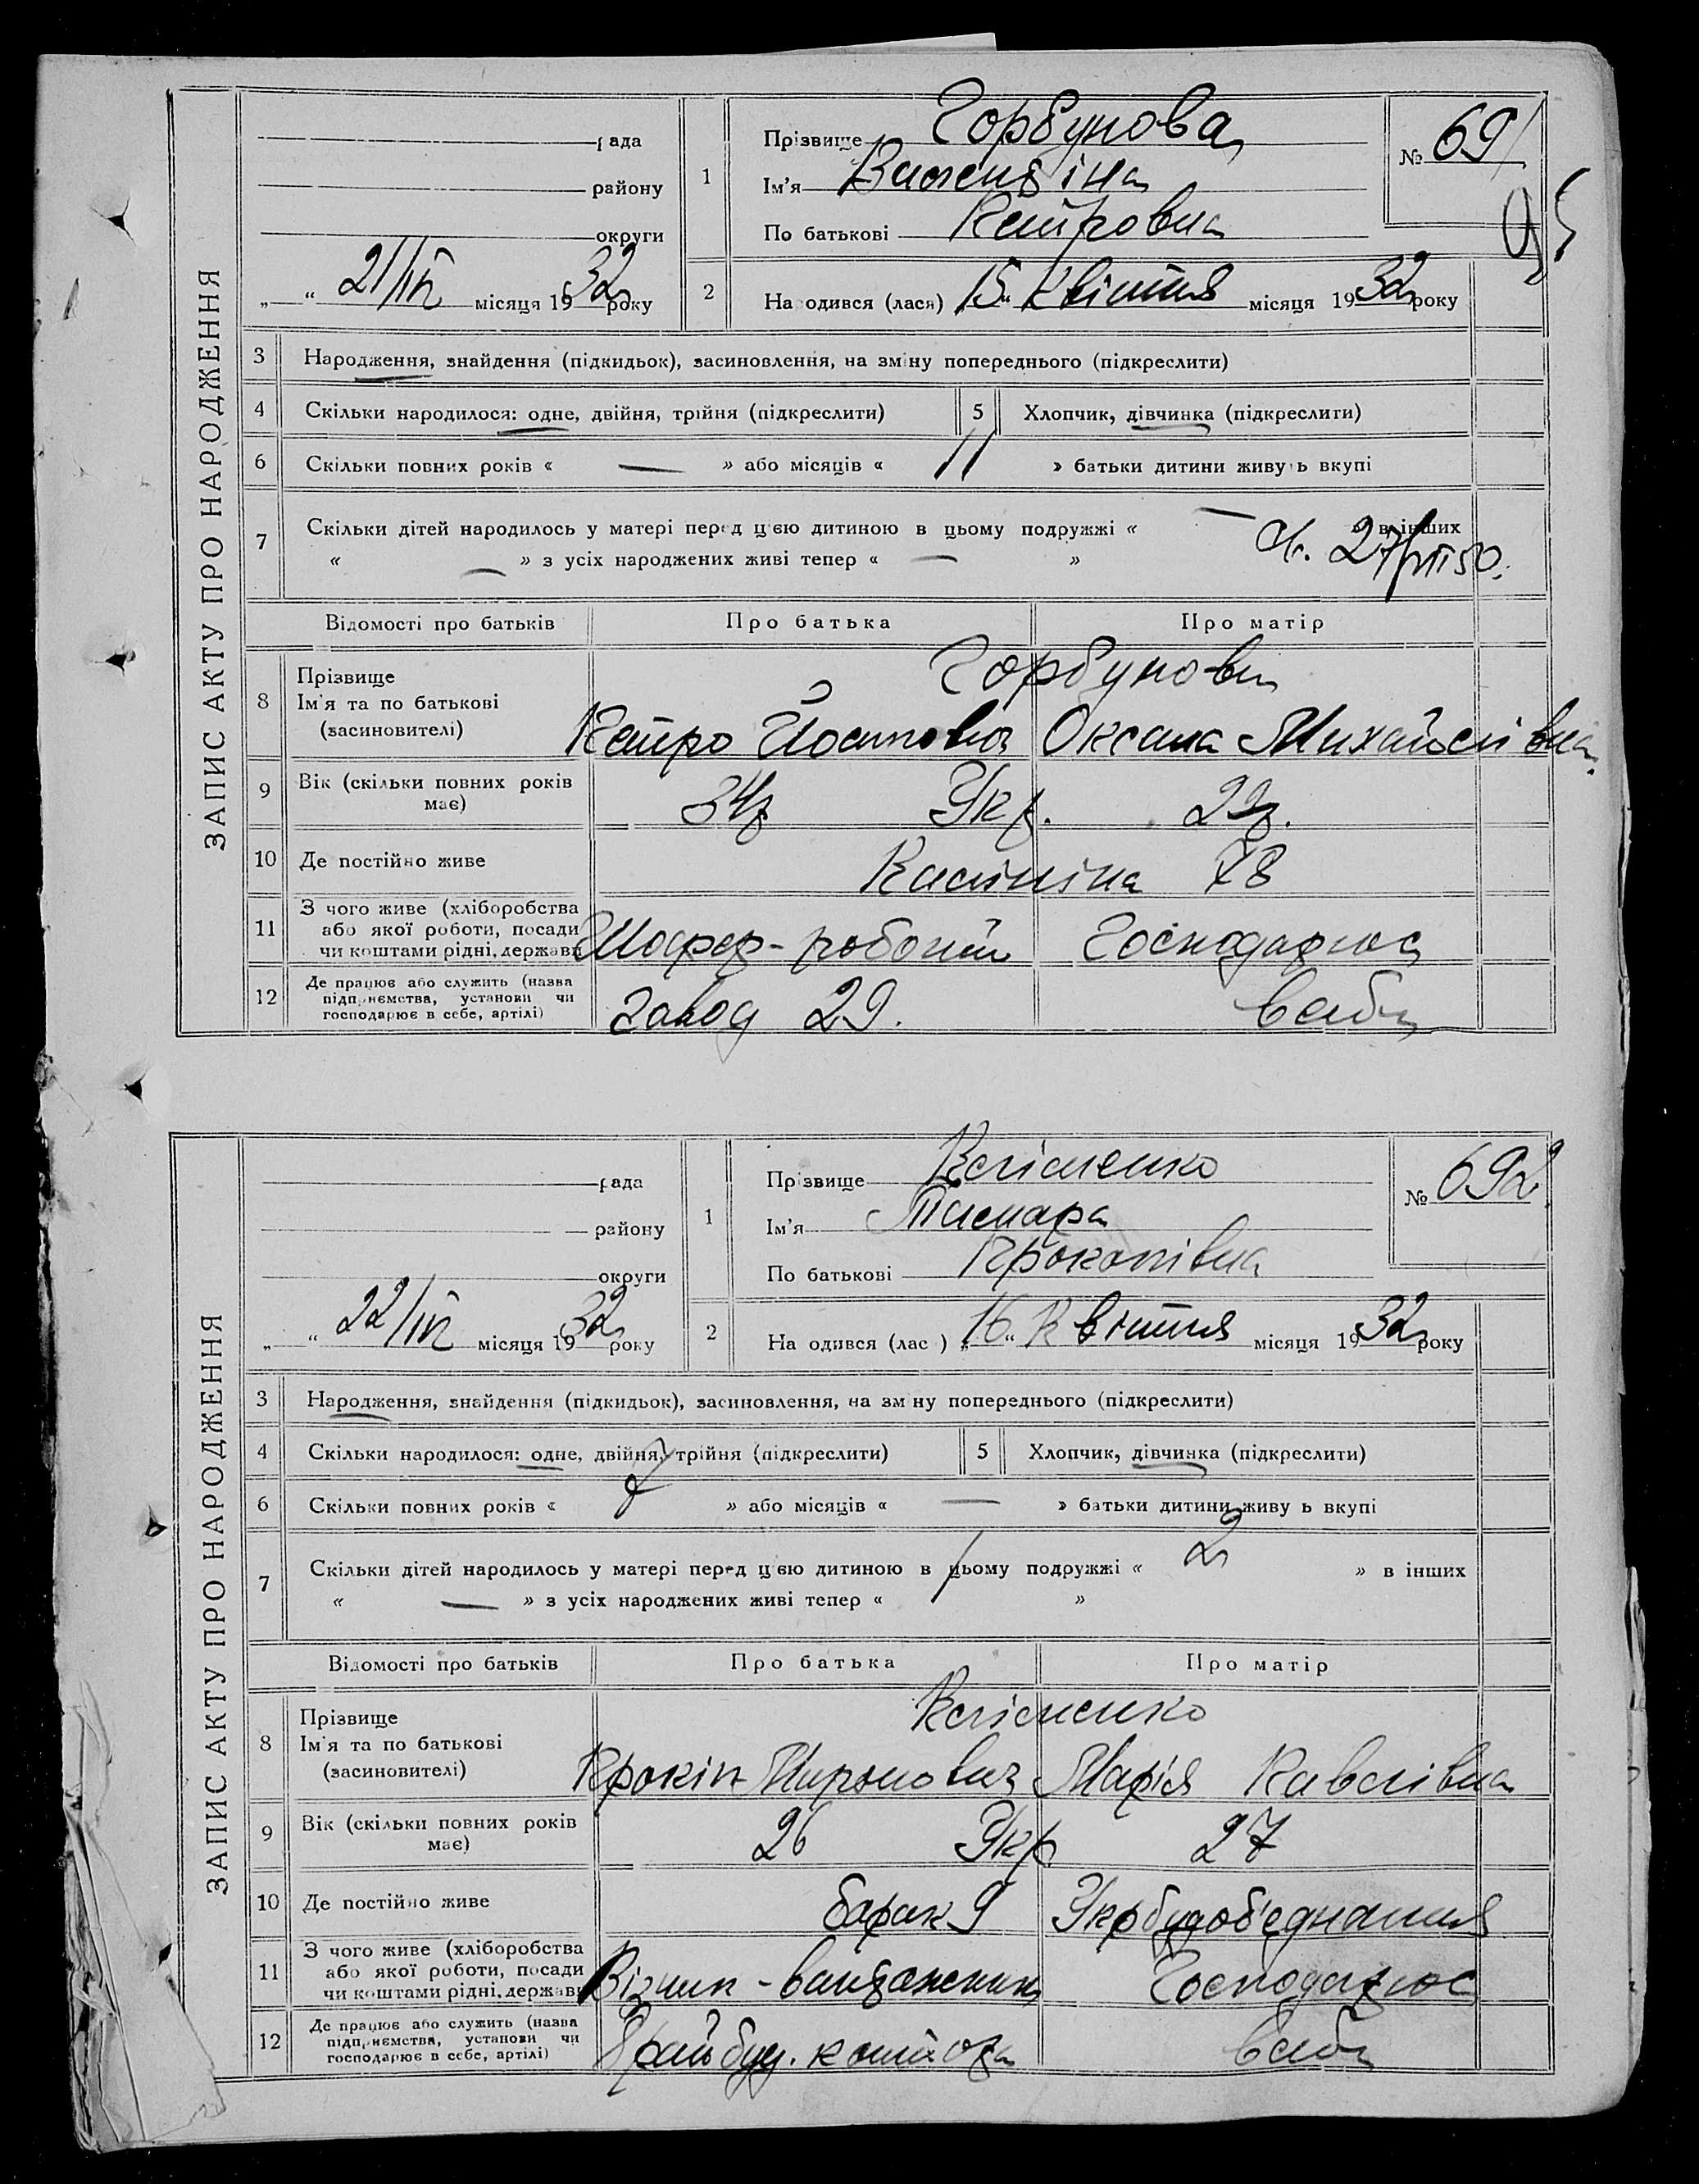 ЗАПИС АКТУ ПРО НАРОДЖЕННЯ
рада
району
округи
„ “ 21/IV місяця 1932 року
1
Прізвище Горбунова
Ім'я Валентіна
По батькові Петровна
№ 691
2
Народився (лася) 15 „ Квітня місяця 1932 року
3 Народження, знайдення (підкидьок), засиновлення, на зміну попереднього (підкреслити)
4 Скільки народилося: одне, двійня, трійня (підкреслити)
5 Хлопчик, дівчинка (підкреслити)
6 Скільки повних років « — » або місяців « 11 » батьки дитини живуть вкупі
7 Скільки дітей народилось у матері перед цією дитиною в цьому подружжі « — » в інших
« — » з усіх народжених живі тепер « — »
27/VII 50.
Відомості про батьків Про батька Про матір
8 Прізвище
Ім'я та по батькові
(засиновителі)
Горбунови
Петро Йосипович Оксана Михайлівна.
9 Вік (скільки повних років має)
34р Укр. 22р.
10 Де постійно живе
Калініна 78
11 З чого живе (хліборобства
або якої роботи, посади
чи коштами рідні, держави
Шофер - роботн Господарює
12 Де працює або служить (назва
підприємства, установи чи
господарює в себе, артілі)
Завод 29. в себе
ЗАПИС АКТУ ПРО НАРОДЖЕННЯ
рада
району
округи
„ “ 22/IV місяця 1932 року
1
Прізвище Кліменко
Ім'я Тамара
По батькові Прокопівна
№ 692
2
На одився (лас ) „ 16 “ Квітня місяця 1932 року
3 Народження, знайдення (підкидьок), засиновлення, на зм ну попереднього (підкреслити)
4 Скільки народилося: одне, двійня, трійня (підкреслити)
5 Хлопчик, дівчинка (підкреслити)
6 Скільки повних років « » або місяців « — » батьки дитини живу ь вкупі
7 Скільки дітей народилось у матері перед цією дитиною в цьому подружжі « 2 » в інших
« — » з усіх народжених живі тепер « / »
Відомості про батьків Про батька Про матір
8 Прізвище
Ім'я та по батькові
(засиновителі)
Кліменко
Прокіп Миронович Марія Павлівна
9 Вік (скільки повних років має)
26 Укр 27
10 Де постійно живе
барак 9 Укрбудоб'єднання
11 З чого живе (хліборобства
або якої роботи, посади
чи коштами рідні, держави
Візник - вантажник Господарює
12 Де працює або служить (назва
підприємства, установи чи
господарює в себе, артілі)
контора в себе